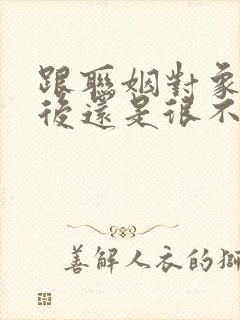 跟聯姻對象
後還是很不
善解人衣的獅